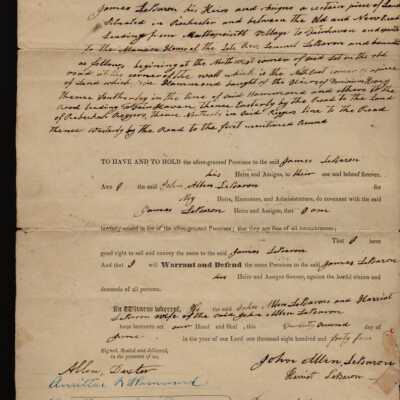 James LeBaron his Heirs and Assigns a certain piece of Land
Situated in Rochester and between the Old and New road
Leading from Mattapoisett Village to Fairhaven and opposite
to the Mansion House of the late Rev. Lemuel LeBaron and bounded
as follows, begining at the Northwest corner of said Lot in the old
road at the corner of the wall which is the Northeast corner of piece
of Land which Hammond bought of the
thence Southerly in the line of said Hammond and others to the
road leading to Fairhaven thence Easterly by the Road to the land
of Rebekah Rogers, thence Northerly in said Rogers line to the Road
thence westerly by the Road to the first mentioned bound
TO HAVE AND TO HOLD the afore-granted Premises to the said James LeBaron
his Heirs and Assigns, to their use and behoof forever.
And I the said John Allen LeBaron for
My Heirs, Executors, and Administrators, do covenant with the said
James LeBaron Heirs and Assigns, that I am
lawfully seized in fee of the afore-granted Premises; that they are free of all incumbrances;
That I have
good right to sell and convey the same to the said James LeBaron
And that I will Warrant and Defend the same Premises to the said James LeBaron
his Heirs and Assigns forever, against the lawful claims and
demands of all persons.
In Witness whereof, We the said John Allen LeBaron and Harriet
LeBaron wife of the said John Allen LeBaron
have hereunto set our Hand and Seal, this twenty second day of
June in the year of our Lord one thousand eight hundred and forty four
Signed, Sealed and delivered,
in the presence of us,
Allen Dexter
John Allen LeBaron
Hammond
Harriet LeBaron